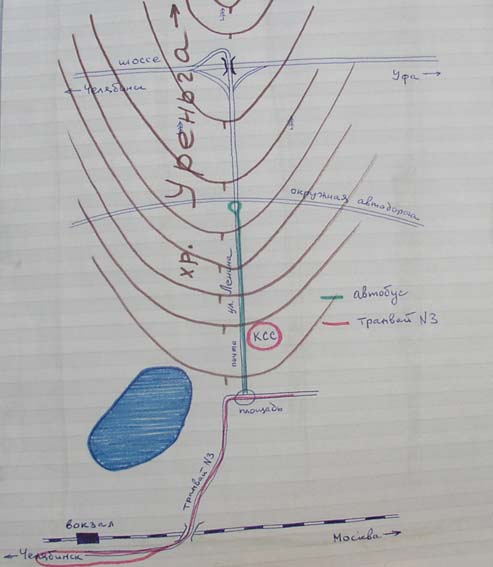 шоссе
← Челябинск
Уфа →
хр. Уреньга →
окружная автодорога
ул. Ленина
почта
КСС
автобус
трамвай N3
площадь
трамвай N3
вокзал
← Челябинск
Москва →